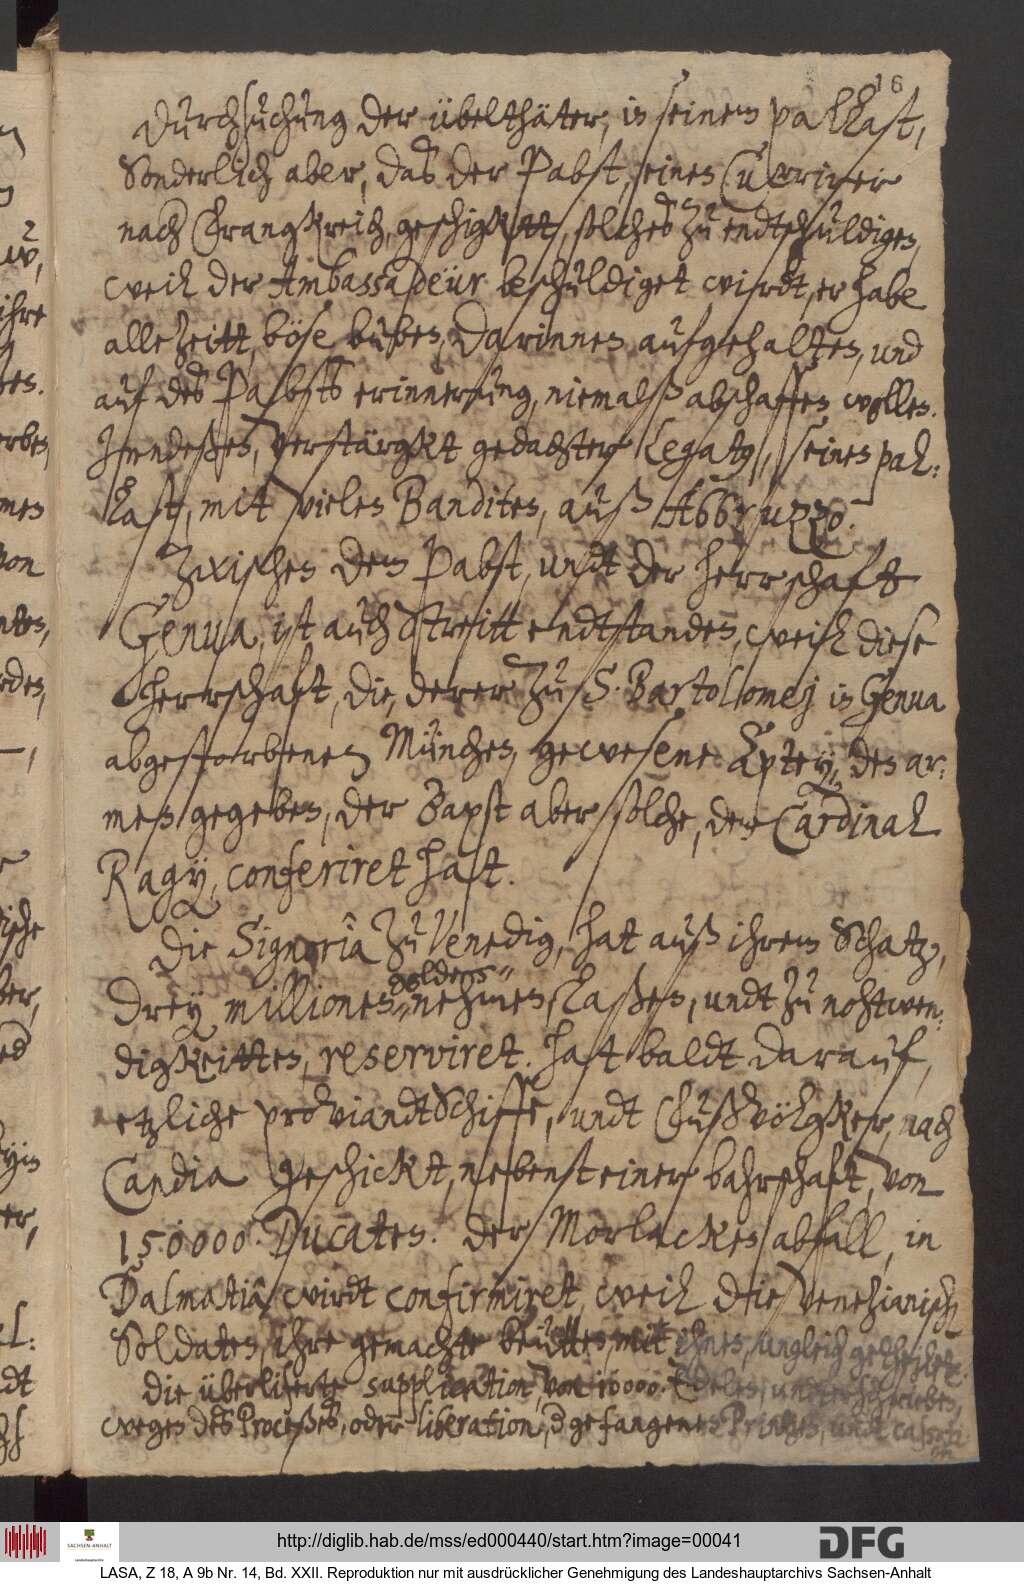 16
durchsuchung der übelthäter, in seinem pallast,
Sonderlich aber, das der Pabst, seinen Curirer
nach Franckreich, geschigktt, solches zu endtschuldigen,
weil der Ambassadeur beschuldiget wirdt, er habe
alle Zeitt, böse buben, darinnen aufgehalten, und
auf des Pabsts erinnerung, niemalß abschaffen wollen.
Immdeßen, verstärgkt gedachter Legat, seinen pal:
last, mit vielen Banditen, auß Abbruzzo.
Zwischen dem Pabst, undt der herrschaft
Genua, ist auch Streitt endtstanden, weil diese
herrschaft, die, derer zu S. Bartollomej in Genua
abgestorbenen München, gewesene Aptey, den ar:
men gegeben, der Bapst aber solche, dem Cardinal
Ragy, conferiret hatt.
Die Signoria zu Venedig, hat auß ihrem Schatz,
drey millionen goldens nehmen laßen, undt zu nohtwen:
digkeitten, reserviret. hatt baldt darauf,
etzliche proviandtSchiffe, undt Fußvölgker, nach
Candia geschickt, nebenst einer bahrschaft, von
150000 Ducaten. der Morlacken abfall, in
Dalmatia, wirdt confirmiret, weil die Venezianisch
Soldaten, ihre gemachte beutten, mit ihnen, ungleich getheilet.
Die überliferte supplication, von 10000. Edelen, unterschrieben,
wegen des Proceßes, oder liberation, d gefangenen Printzen, undt
http://diglib.hab.de/mss/ed000440/start.htm?image=00041
SACHSEN-ANHALT
DFG
LASA, Z 18, A 9b Nr. 14, Bd. XXII. Reproduktion nur mit ausdrücklicher Genehmigung des Landeshauptarchivs Sachsen-Anhalt